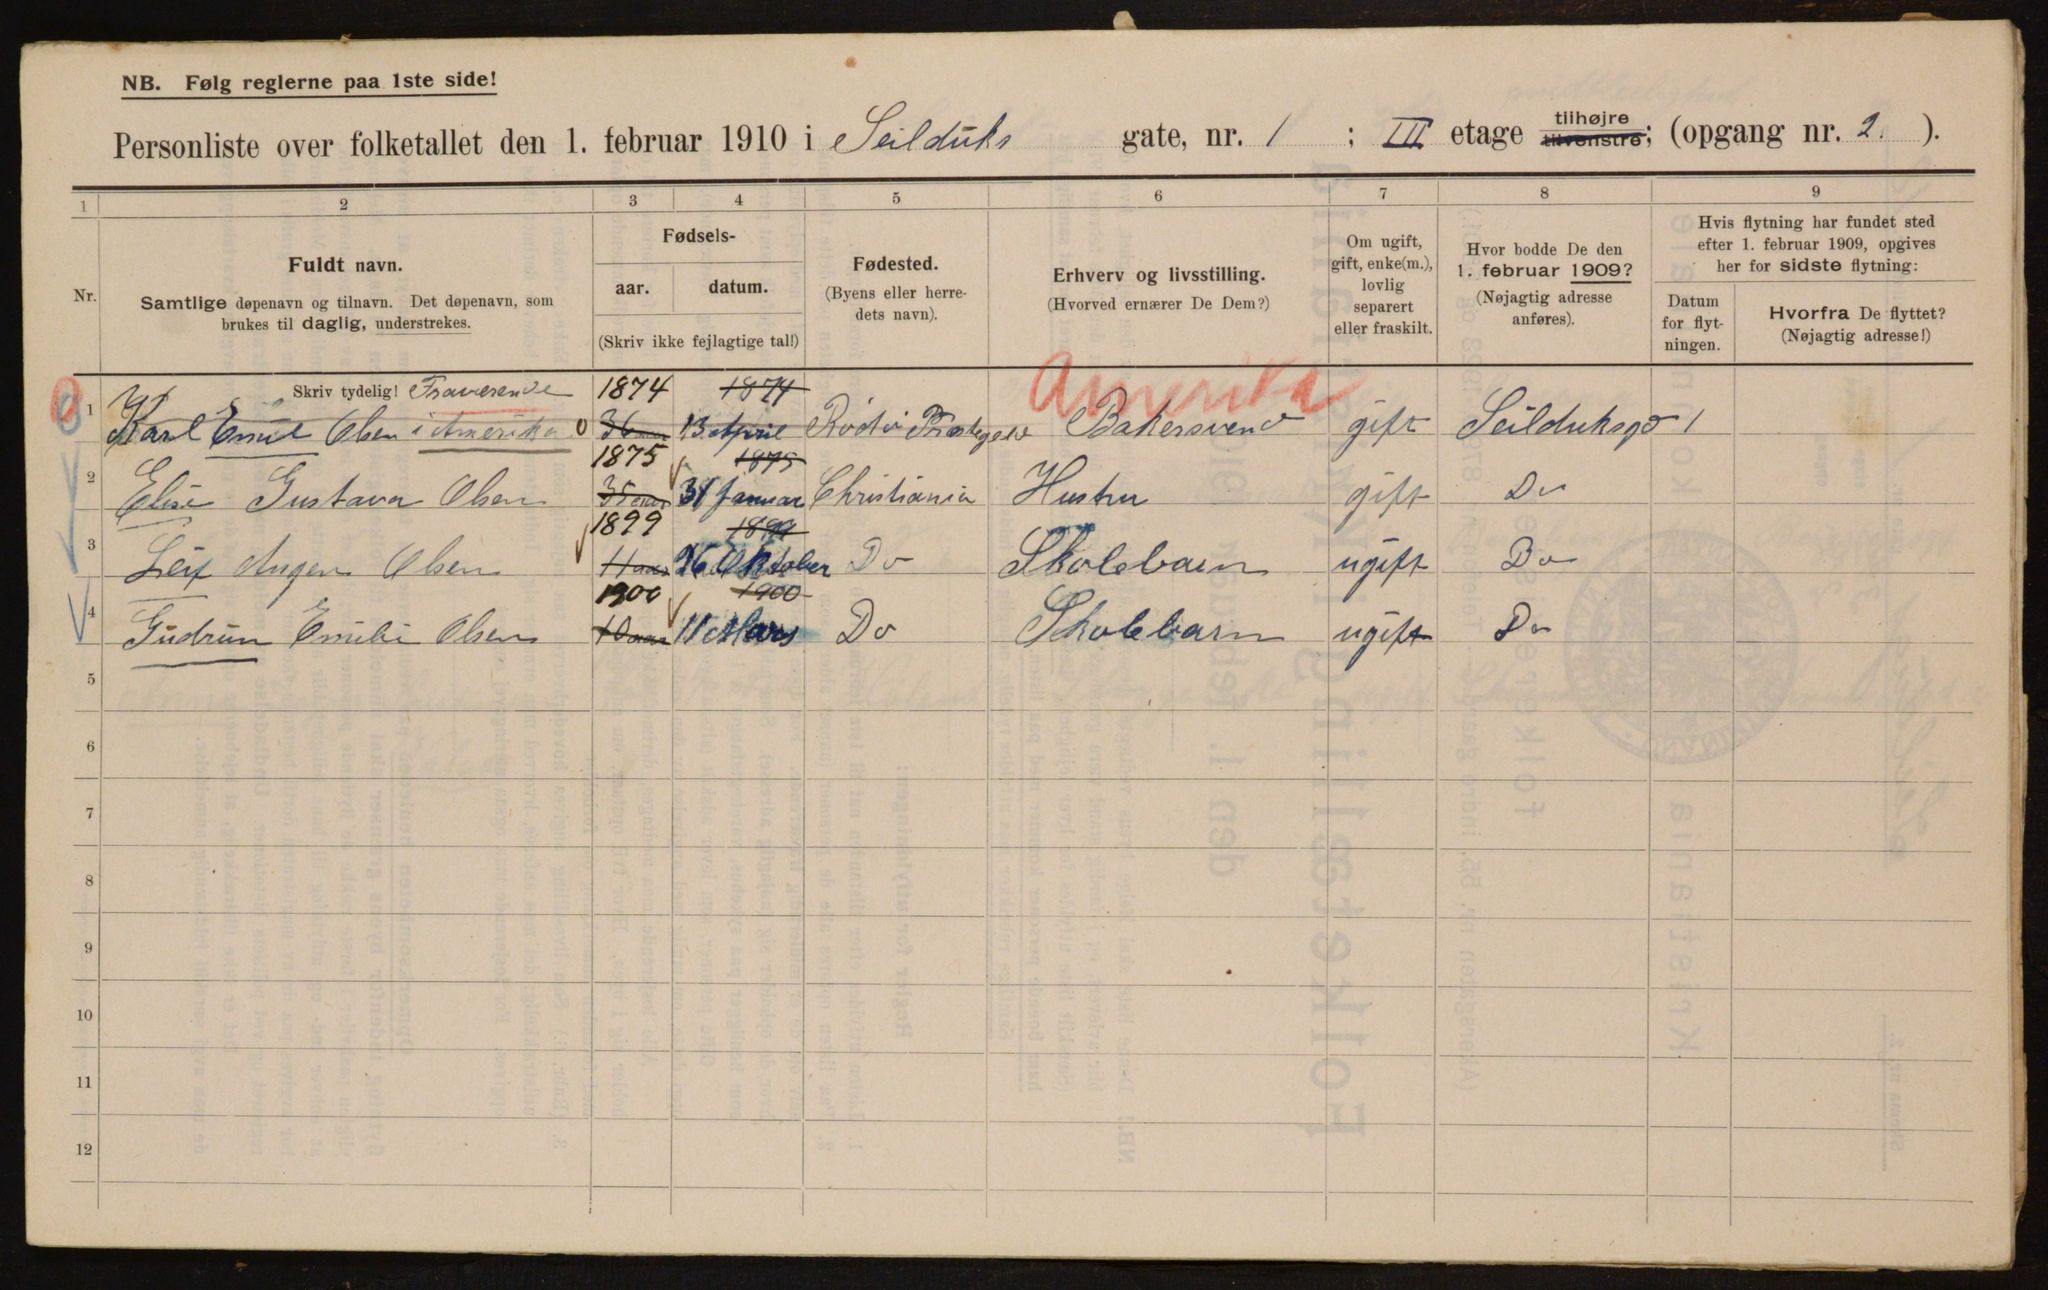 NB. Følg reglerne paa 1ste side!
Personliste over folketallet den 1. februar 1910 i Seilduks gate, nr. 1 ; III etage tilhøjre tilvenstre; (opgang nr. 2. ).
1 2 3 4 5 6 7 8 9
Nr.
Fuldt navn.
Samtlige døpenavn og tilnavn. Det døpenavn, som
brukes til daglig, understrekes.
Fødsels-
aar. datum.
(Skriv ikke fejlagtige tal!)
Fødested.
(Byens eller herre-
dets navn).
Erhverv og livsstilling.
(Hvorved ernærer De Dem?)
Om ugift,
gift, enke(m.),
lovlig
separert
eller fraskilt.
Hvor bodde De den
1. februar 1909?
(Nøjagtig adresse
anføres).
Hvis flytning har fundet sted
efter 1. februar 1909, opgives
her for sidste flytning:
Datum
for flyt-
ningen.
Hvorfra De flyttet?
(Nøjagtig adresse!)
Skriv tydelig! Fraværende 1874 1874 Amerika
1 Karl Emil Olsen i Amerika 0 36 aar 13 April Rødø Bakersvend gift Seilduksgd 1
1875 1875
2 Elise Gustava Olsen 35 aar 31 Januar Christiania Hustru gift Do
1899 1899
3 Leif Olsen 11 aar 26 Oktober Do Skolebarn ugift Do
1900 1900
4 Gudrun Emilie Olsen 10 aar 11 Mars Do Skolebarn ugift Do
5
6
7
8
9
10
11
12